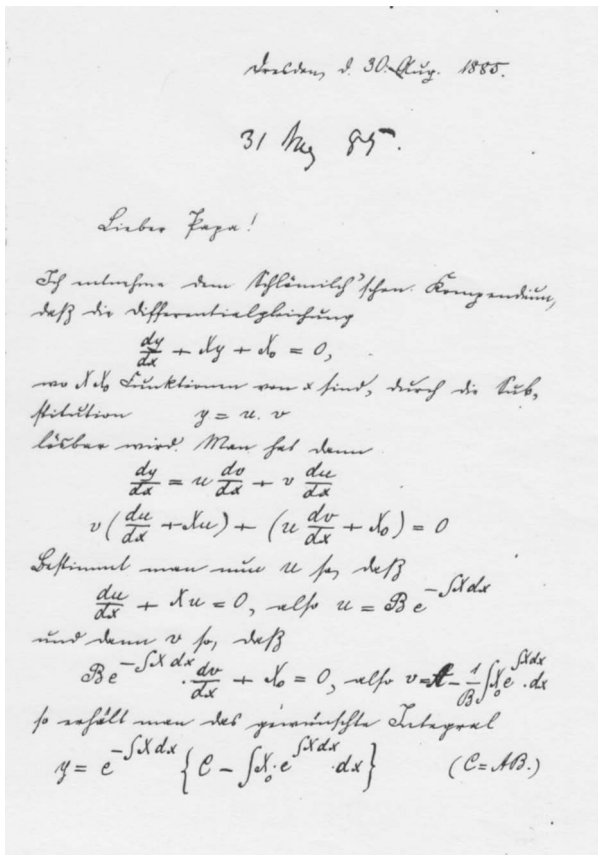 Dresden, d. 30. Aug. 1885.
31 Aug 85.
Lieber Papa!
Ich entnehme dem Schlömilch'schen Kompendium,
daß die Differentialgleichung
dy/dx + Xy + X₀ = 0,
wo X X₀ Funktionen von x sind, durch die Sub-
stitution y = u. v
lösbar wird. Man hat dann
dy/dx = u dv/dx + v du/dx
v(du/dx + Xu) + (u dv/dx + X₀) = 0
Bestimmt man nun u so, daß
du/dx + Xu = 0, also u = B e^{-∫X dx}
und dann v so, daß
B e^{-∫X dx} · dv/dx + X₀ = 0, also v = A - 1/B ∫X₀ e^{∫X dx} · dx
so erhält man das gewünschte Integral
y = e^{-∫X dx} {C - ∫X₀ · e^{∫X dx} · dx} (C = AB.)